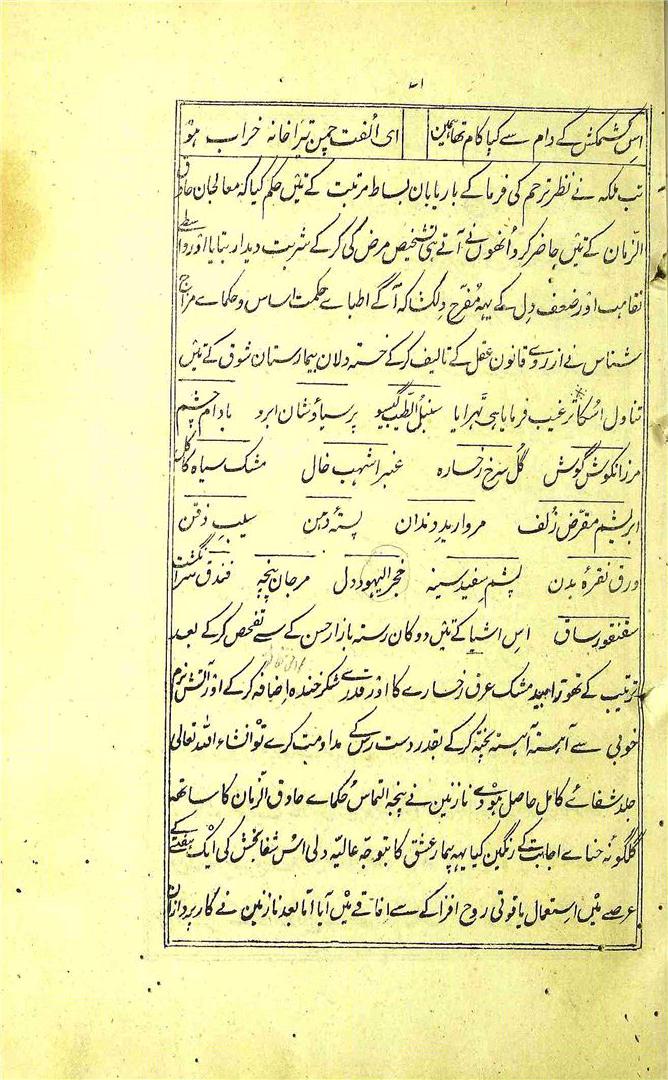 ۲۱
اس کشمکش کے دام سے کیا کام تھا ہمین ای الفت چمن تیرا خانہ خراب ہو
تب ملکہ نے نظر ترحم کی فرما کے باریابان بساط مرتبت کے تئین حکم کیا کہ معالجان حاذق
الزمان کے تئین حاضر کرو انھون نے آتے ہی تشخیص مرض کی کر کے شربت دیدار بتایا اور واسطے
نقاہت اور ضعف دل کے یہہ مفرح دلکشا کہ آگے اطباے حکمت اساس و حکماے مزاج
شناس نے از روے قانون عقل کے تالیف کر کے خستہ دلان بیمارستان شوق کے تئین
تناول اسکا ترغیب فرمایا ہی ٹہرایا سنبل الطیب گیسو پرسیاؤشان ابرو بادام چشم
مرزانگوش گوش گل سرخ رخسارہ عنبر اشہب خال مشک سیاہ کاکل
ابریشم مقرض زلف مروارید دندان پستہ دہن سیب ذقن
ورق نقرۂ بدن پشم سفید سینہ حجر الیہود دل مرجان پنجہ فندق سر انگشت
سقنقور ساق اس اشیا کے تئین دوکان رستہ بازار حسن کے سے تفحص کر کے بعد
ترتیب کے تھوڑا بید مشک عرق رخسارے کا اور قدرے شکر خندہ اضافہ کر کے اور آتش نرم
خوبی سے آہستہ آہستہ پختہ کر کے بقدر دست رس کے مداومت کرے تو انشاء اللہ تعالی
جلد شفاے کامل حاصل ہووے نازنین نے پنجہ التماس حکماے حاذق الزمان کا ساتھ
گلگونہ حناے اجابت کے رنگین کیا یہہ بیمار عشق کا بتوجہ عالیہ دلی اس شفا بخش کی ایک ہفتے کے
عرصے مین استعمال یاقوتی روح افزا کے سے افاقے مین آیا اما بعد نازنین نے کارپردازان